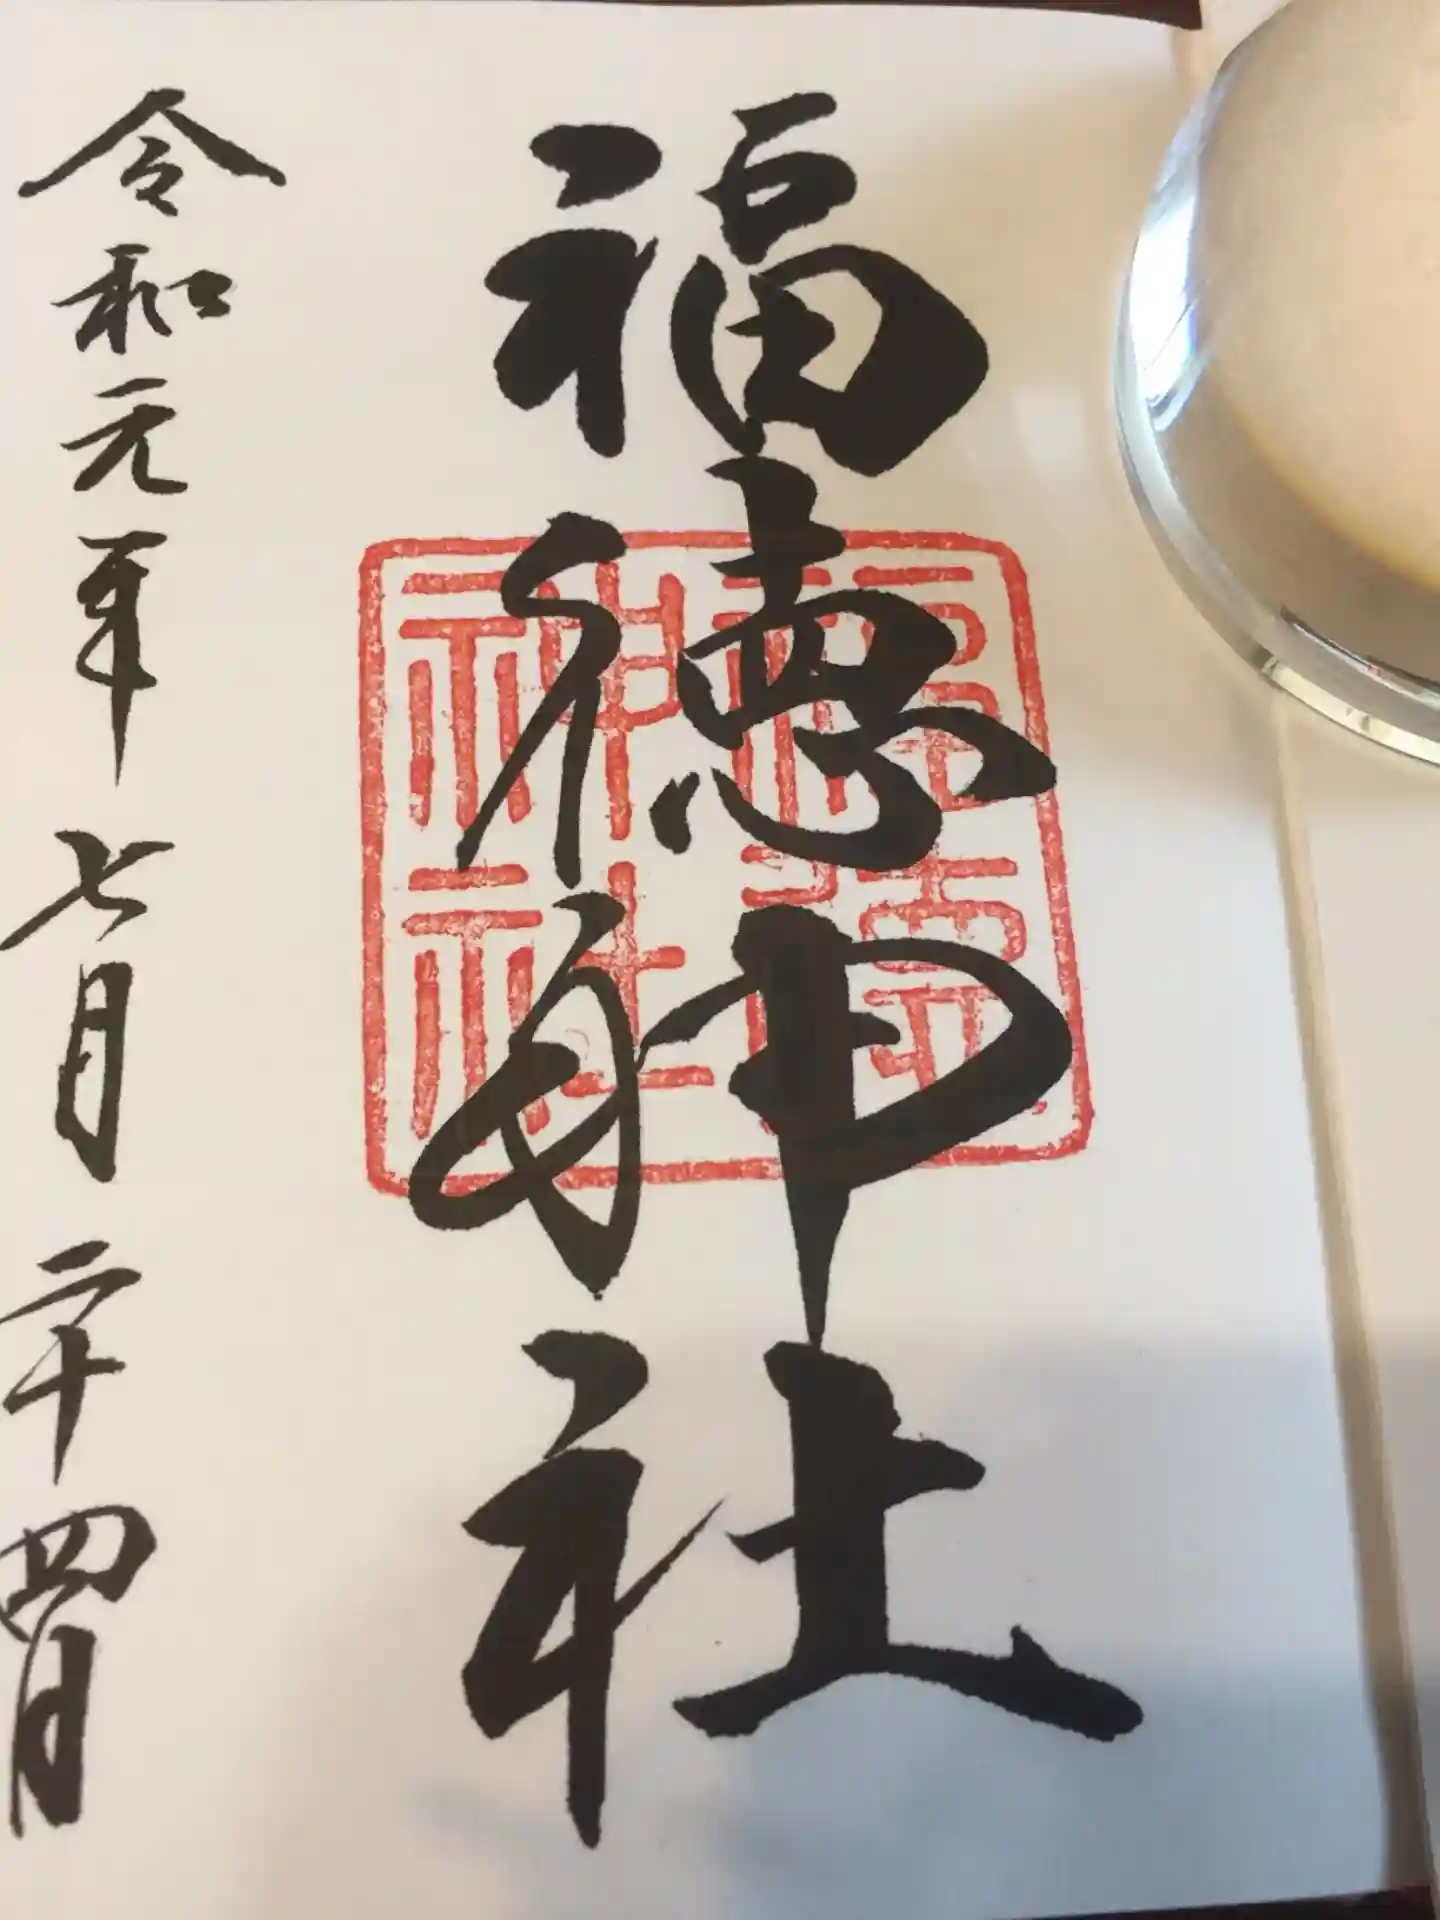 福徳神社
福徳
神社
令和元年七月二十四日